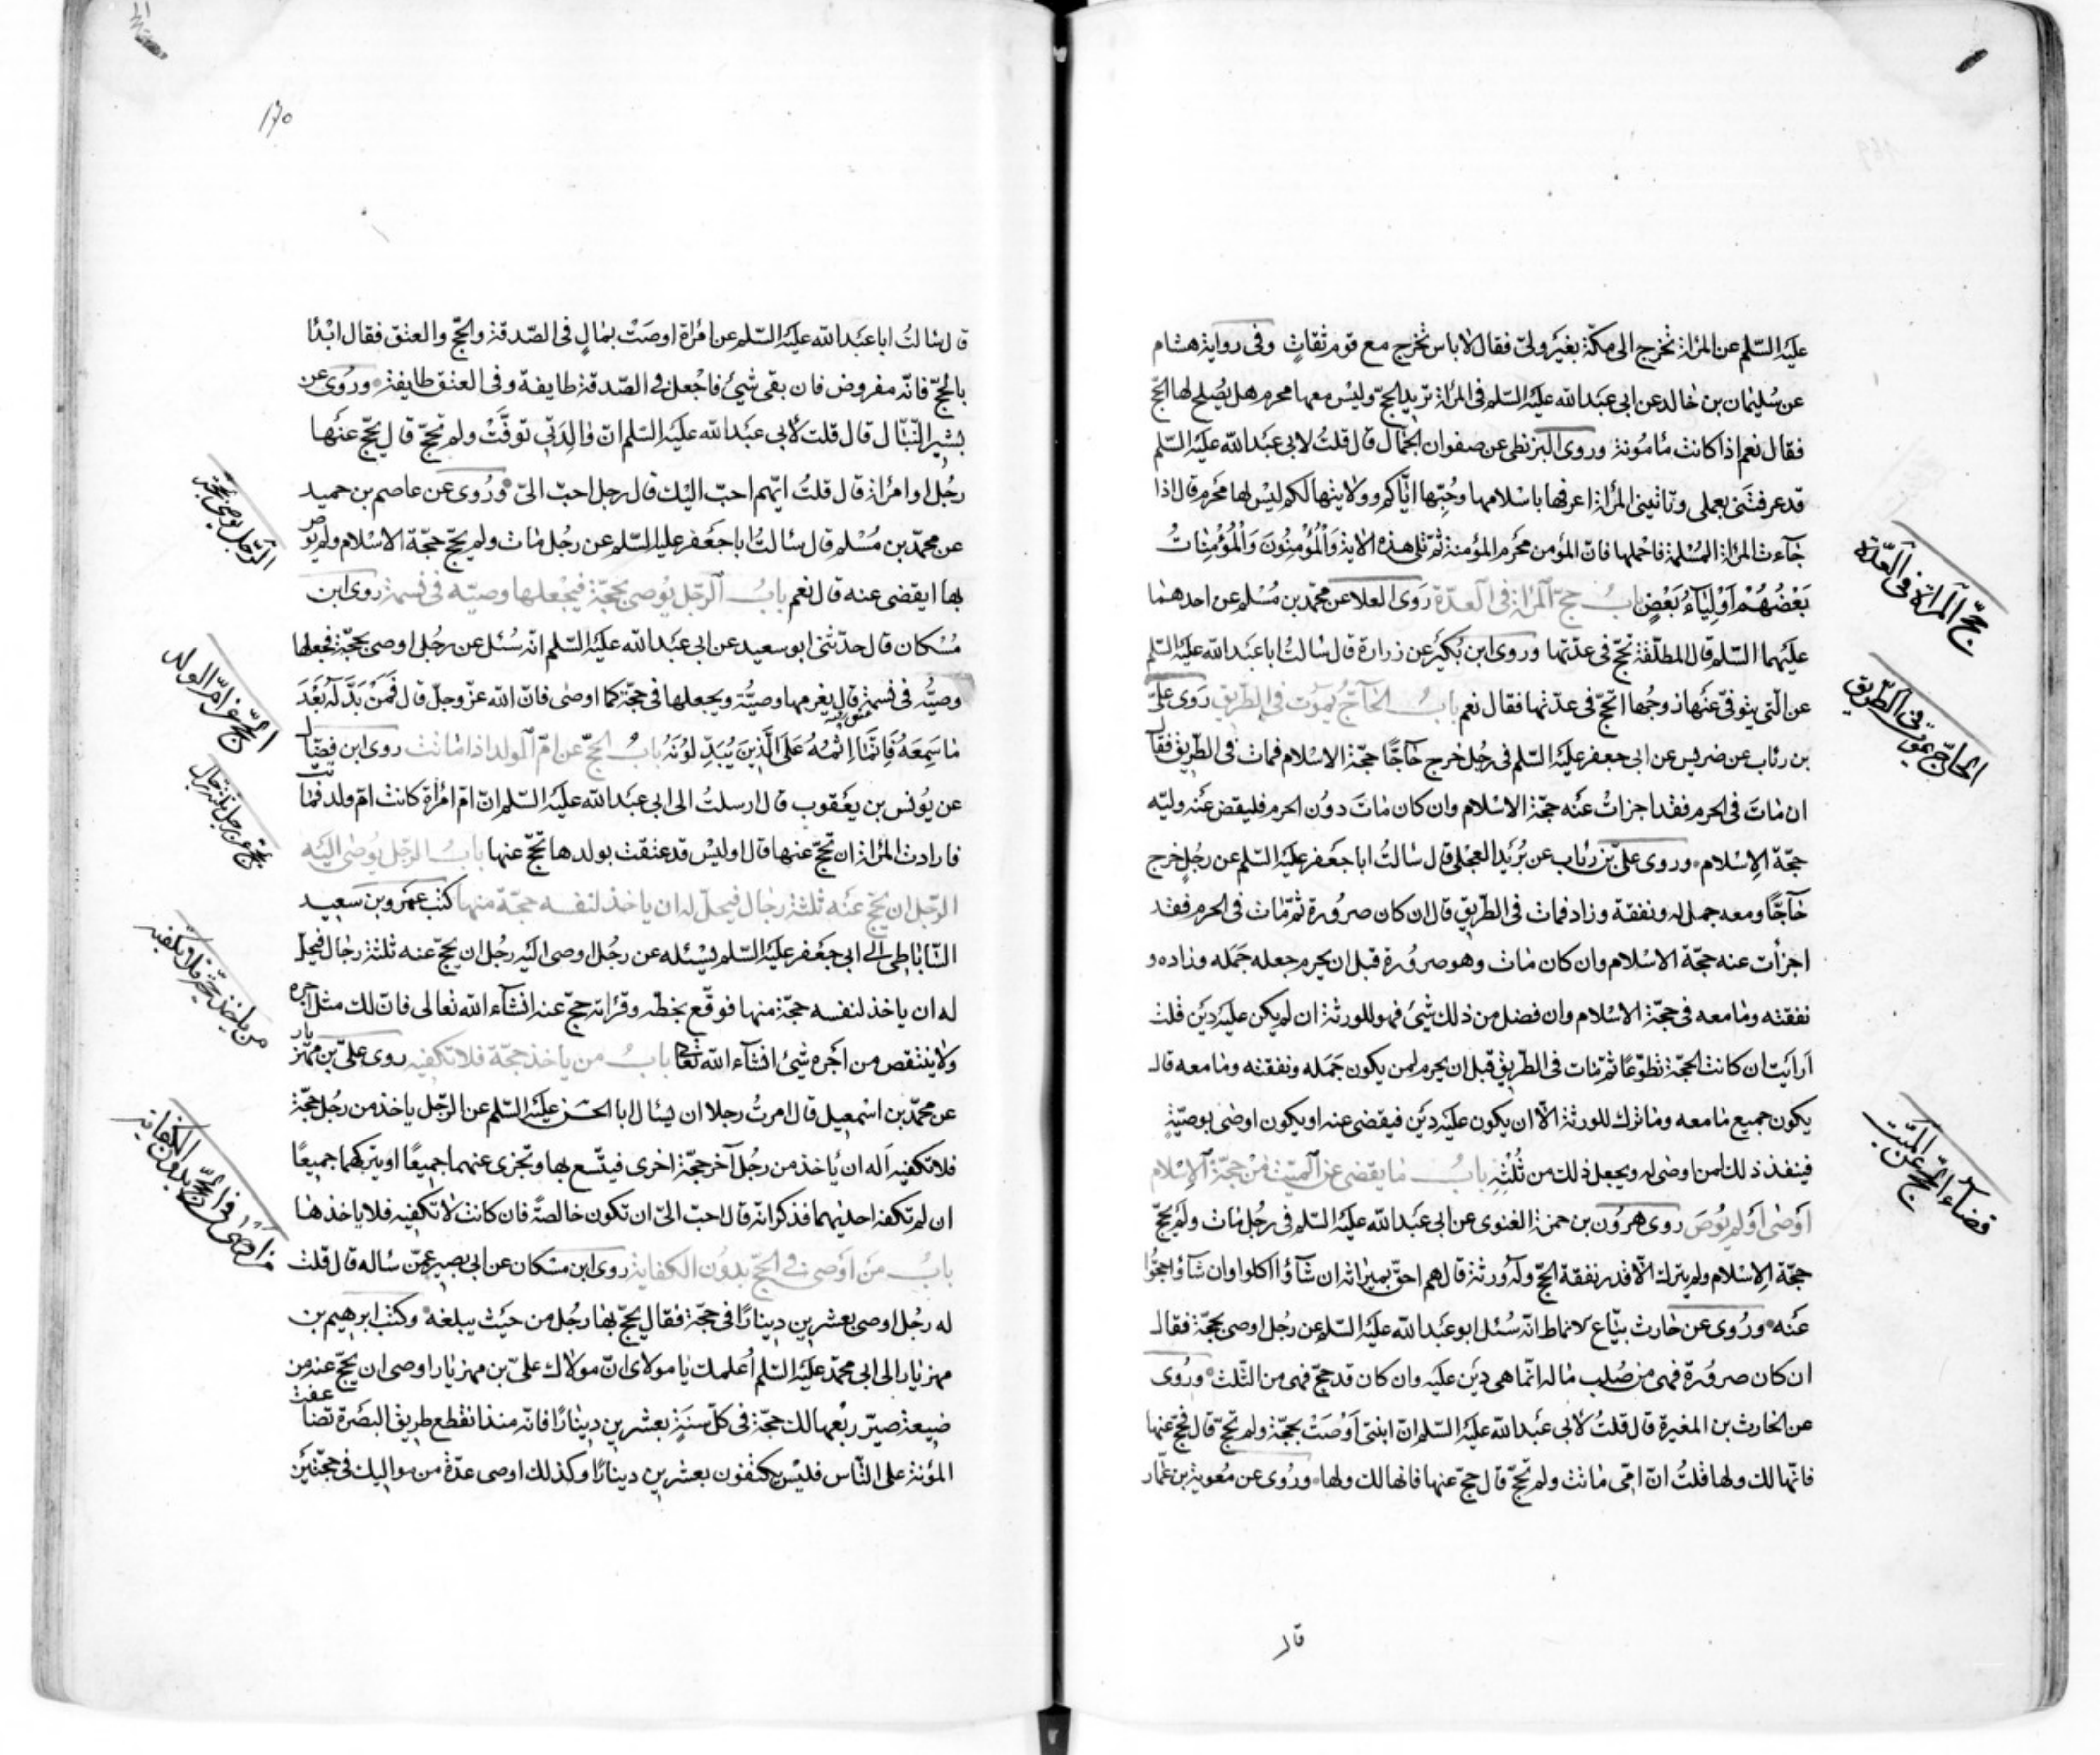 عليه السّلم عن المرأة تخرج الى مكّة بغير ولىّ فقال لاباس تخرج مع قوم ثقاتٍ وفى رواية هشام
عن سُليمان بن خالد عن ابى عبد الله عليه السّلم فى المرأة تريد الحجّ وليس معها محرم هل يُصلح لها الحجّ
فقال نعم اذا كانت مامُونة وروى البزنطى عن صفوان الجمّال قال قلتُ لابى عبد الله عليه السّلم
قد عرفتنى بعملى وتاتينى المرأة اعرفها باسلامها وحُبّها ايّاكم وولايتها لكم ليس لها محرم قال اذا
جآءت المرأة المسُلمة فاحملها فانّ المؤمن محرم المؤمنة ثمّ تلى هذه الاية وَالْمُؤْمِنُونَ وَالْمُؤْمِنَاتُ
بَعْضُهُمْ اَوْلِيَآءُ بَعْضٍ بابُ حجّ المرأة فى العدّة رَوَى العلا عن محمّد بن مُسْلم عن احدهما
عليهما السّلم قال المطلّقة تحجّ فى عدّتها وروى ابن بُكَيْر عن زرارة قال سالتُ ابا عبد الله عليه السّلم
عن الّتى يتوفّى عنها زوجُها اتحجّ فى عدّتها فقال نعم بابُ الحآجّ يموُت فى الطّريق رَوَى علىّ
بن رئاب عن ضريس عن ابى جعفر عليه السّلم فى رجُل خرج حآجًّا حجّة الاسْلام فمات فى الطّريق فقال
ان ماتَ فى الحرم فقد اجزاتُ عنه حجّة الاسْلام وان كان ماتَ دوُن الحرم فليقض عنه وليّه
حجّة الاِسْلام وروى علىّ بن رئاب عن بُرَيْد العجلى قال سالتُ ابا جعفر عليه السّلم عن رجُلٍ خرج
حآجًّا ومعه جمل له ونفقة وزاد فمات فى الطّريق قال ان كان صروُرة ثمّ مات فى الحرم فقد
اجزأت عنه حجّة الاسْلام وان كان مات وهو صروُرة قبل ان يحرم جعله جَمَله وزاده و
نفقته ومامعه فى حجّة الاسْلام وان فضل من ذلك شئ فهو للورثة ان لم يكن عليه دَيْن قلت
اَرايَت ان كانت الحجّة تطوّعًا ثمّ مات فى الطّريق قبل ان يحرم لمن يكون جَمَله ونفقته ومامعه قال
يكون جميع مامعه وماترك للورثة الّا ان يكون عليه دَيْن فيقضى عنه او يكون اوصى بوصيّةٍ
فينفذ ذلك لمن اوصى له ويجعل ذلك من ثُلْثِهِ بابُ ما يقضى عن الميّت من حجّة الاِسْلام
اَوْصى اَوْ لم يُوْصَ روى هروُن بن حمزة الغنوى عن ابى عبد الله عليه السّلم فى رجُل مات ولَم يحجّ
حجّة الاِسْلام ولم يترك الّا قدر نفقة الحجّ وله ورثة قال هم احقّ بميراثه ان شآؤا اكلوا وان شآؤا حجّوا
عنه ورُوى عن حارث بيّاع لانماط انّه سُئل ابو عبد الله عليه السّلم عن رجُل اوصى بحجّة فقال
ان كان صروُرة فهى من صُلب ماله انّما هى دَيْن عليه وان كان قد حجّ فهى من الثّلث ورُوى
عن الحارث بن المغيرة قال قلتُ لابى عبد الله عليه السّلم انّ ابنتى اَوْصَتْ بحجّة ولم تحجّ قال فحجّ عنها
فانّها لك ولها قلتُ انّ امّى ماتت ولم تحجّ قال حجّ عنها فانها لك ولها ورُوى عن معُوية بن عمّار
قال
حجّ المرأة فى العدّة
الحآجّ يموت فى الطّريق
قضآء الحجّ عن الميّت
١٧٠
قال سالتُ ابا عبد الله عليه السّلم عن امرأة اوصَتْ بمالٍ فى الصّدقة والحجّ والعتق فقال ابْدَا
بالحجّ فانّه مفروض فان بقى شئ فاجْعل فى الصّدقة طايفة وفى العتق طايفة ورُوى عن
بشير النّبّال قال قلت لأبى عبد الله عليه السّلم انّ والِدَتى توفّت ولم تحجّ قال يحجّ عنها
رجُل او امرأة قال قلتُ ايّهم احبّ اليْك قال رجل احبّ الىّ ورُوى عن عاصم بن حميد
عن محمّد بن مُسْلم قال سالتُ ابا جعفر عليه السّلم عن رجُل مات ولم يحجّ حجّة الاسْلام ولم يُوص
بها ايقضى عنه قال نعم بابُ الرّجل يُوصى بحجّة فيجْعلها وصيّه فى نسمة روى ابن
مُسْكان قال حدّثنى ابو سعيد عن ابى عبد الله عليه السّلم انّه سُئل عن رجُل اوصى بحجّة فجعلها
وصيُّه فى نسمة قال يغرمها وصيُّه ويجعلها فى حجّة كما اوصى فانّ الله عزّ وجلّ قال فَمَنْ بَدَّلَهُ بَعْدَ
مَاسَمِعَهُ فَاِنَّمَا اِثْمُهُ عَلَى الَّذِينَ يُبَدِّلوُنَهُ بابُ الحجّ عن امّ الولد اذا ماتت روى ابن فضّال
عن يُونس بن يعقوب قال ارسلتُ الى ابى عبد الله عليه السّلم انّ امّ امرأة كانت امّ ولد فماتت
فارادت المرأة ان تحجّ عنها قال اوليْس قد عتقت بولدها تحجّ عنها بابُ الرّجل يُوصى اليه
الرّجل ان يحجّ عنه ثلثة رجال فيحلّ له ان ياخذ لنفسه حجّة منها كتب عَمْرو بن سعيد
السّاباطى الى ابى جعفر عليه السّلم يسْئله عن رجُل اوصى اليْه رجُل ان يحجّ عنه ثلثة رجال فيحلّ
له ان ياخذ لنفسه حجّة منها فوقّع بخطّه وقراته حجّ عنه انشآء الله تعالى فانّ لك مثل اجره
ولا ينتقص من اَجره شئ انشآء الله تعالى بابُ من ياخذ حجّة فلا تكفيه روى علىّ بن مهزيار
عن محمّد بن اسْمعيل قال امرتُ رجلا ان يسْال ابا الحسن عليه السّلم عن الرّجل ياخذ من رجُل حجّة
فلا تكفيه اَله ان ياخذ من رجُل آخر حجّة اخرى فيتّسع بها وتجزى عنهما جميعًا او يتركهما جميعًا
ان لم تكفه احديهما فذكر انّه قال احبّ الىّ ان تكون خالصةً فان كانت لاتكفيه فلا ياخذها
بابُ مَنْ اَوْصى فى الحجّ بدوُن الكفاية روى ابن مسْكان عن ابى بصير عمّن ساله قال قلت
له رجُل اوصى بعشرين دينارًا فى حجّة فقال يحجّ بها رجُل من حَيْث يبلغه وكتب ابرهيم بن
مهزيار الى ابى محمّد عليه السّلم اُعلمك يا مولاى انّ مولاك علىّ بن مهزيار اوصى ان يحجّ عنه من
ضيعة صيّر ربْعها لك حجّة فى كلّ سنةٍ بعشرين دينارًا فانّه منذ انقطع طريق البصْرة تضاعفت
المؤنة على النّاس فليْس يكتفون بعشرين دينارًا وكذلك اوصى عدّة من مواليك فى حجّتيْن
الرّجل يوصى بحجّة
الحجّ عن امّ الولد
يحجّ عن رجل ثلثة رجال
من ياخذ حجّة فلا تكفيه
من اوصى فى الحجّ بدون الكفاية